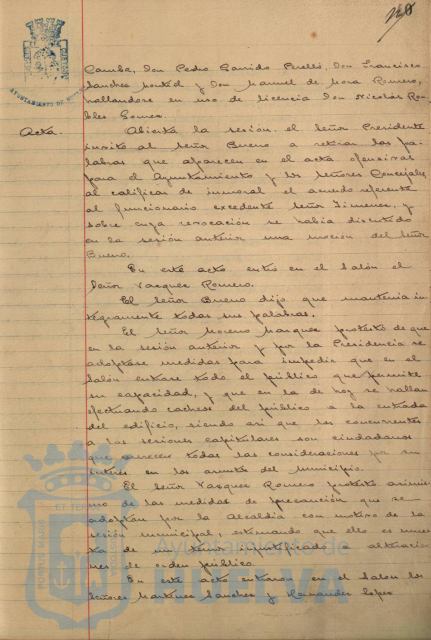 Camba, Don Pedro Garrido Perelló, Don Francisco
Sanchez y Don Manuel de Mora Romero,
hallandose en uso de licencia Don Nicolás Ro-
bles Gomez.
Acta.
Abierta la sesión, el Señor Presidente
invitó al Señor Bueno a retirar las pa-
labras que aparecen en el acta ofensivas
para el Ayuntamiento y los Señores Concejales
al calificar de inmoral el acuerdo referente
al funcionario excedente Señor Jimenez, y
sobre cuya revocación se había discutido
en la sesión anterior una moción del Señor
Bueno.
En este acto entró en el Salón el
Señor Vazquez Romero.
El Señor Bueno dijo que mantenia in-
tegramente todas sus palabras.
El Señor Moreno Marquez protestó de que
en la sesión anterior y por la Presidencia se
adoptase medidas para impedir que en el
Salón entrase todo el público que permite
su capacidad, y que en la de hoy se hallan
efectuando cacheos del público a la entrada
del edificio, siendo asi que los concurrentes
a las sesiones capitulares son ciudadanos
que merecen todas las consideraciones por su
interes en los asuntos del Municipio.
El Señor Vazquez Romero protestó asimis-
mo de las medidas de precaución que se
adoptan por la Alcaldia con motivo de la
sesión municipal, estimando que ello es mues-
tra de un temor injustificado a alteracio-
nes de orden público.
En este acto entraron en el Salón los
Señores Martinez Sanchez y Hernandez Lopez
Ayuntamiento de
HUELVA